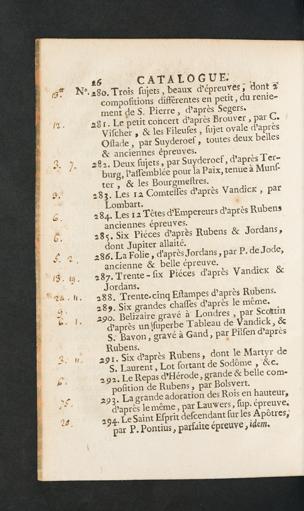 26 CATALOGUE.
N°. 280. Trois sujets, beaux d'épreuves, dont 2
compositions différentes en petit, du renie-
ment de S. Pierre, d'après Segers.
12. 281. Le petit concert d'après Brouver, par C.
Visscher, & les Fileuses, sujet ovale d'après
Ostade, par Suyderoef, toutes deux belles
& anciennes épreuves.
3. 7. 282. Deux sujets, par Suyderoef, d'après Ter-
burg, l'assemblée pour la Paix, tenue à Muns-
ter, & les Bourgmestres.
3. 283. Les 12 Comtesses d'après Vandicx, par
Lombart.
6. 284. Les 12 Têtes d'Empereurs d'après Rubens
anciennes épreuves.
6. 285. Six Piéces d'après Rubens & Jordans,
dont Jupiter allaité.
5. 2. 286. La Folie, d'après Jordans, par P. de Jode,
ancienne & belle épreuve.
13. 19. 287. Trente-six Piéces d'après Vandicx &
Jordans.
288. Trente-cinq Estampes d'après Rubens.
289. Six grandes chasses d'après le même.
290. Belizaire gravé à Londres, par Scottin
d'après un superbe Tableau de Vandick, &
S. Bavon, gravé à Gand, par Pilsen d'après
Rubens.
291. Six d'après Rubens, dont le Martyr de
S. Laurent, Lot sortant de Sodôme, &c.
6. 292. Le Repas d'Hérode, grande & belle com-
position de Rubens, par Bolsvert.
293. La grande adoration des Rois en hauteur,
d'après le même, par Lauwers, sup. épreuve.
20. 294. Le Saint Esprit descendant sur les Apôtres,
par P. Pontius, parfaite épreuve, idem.